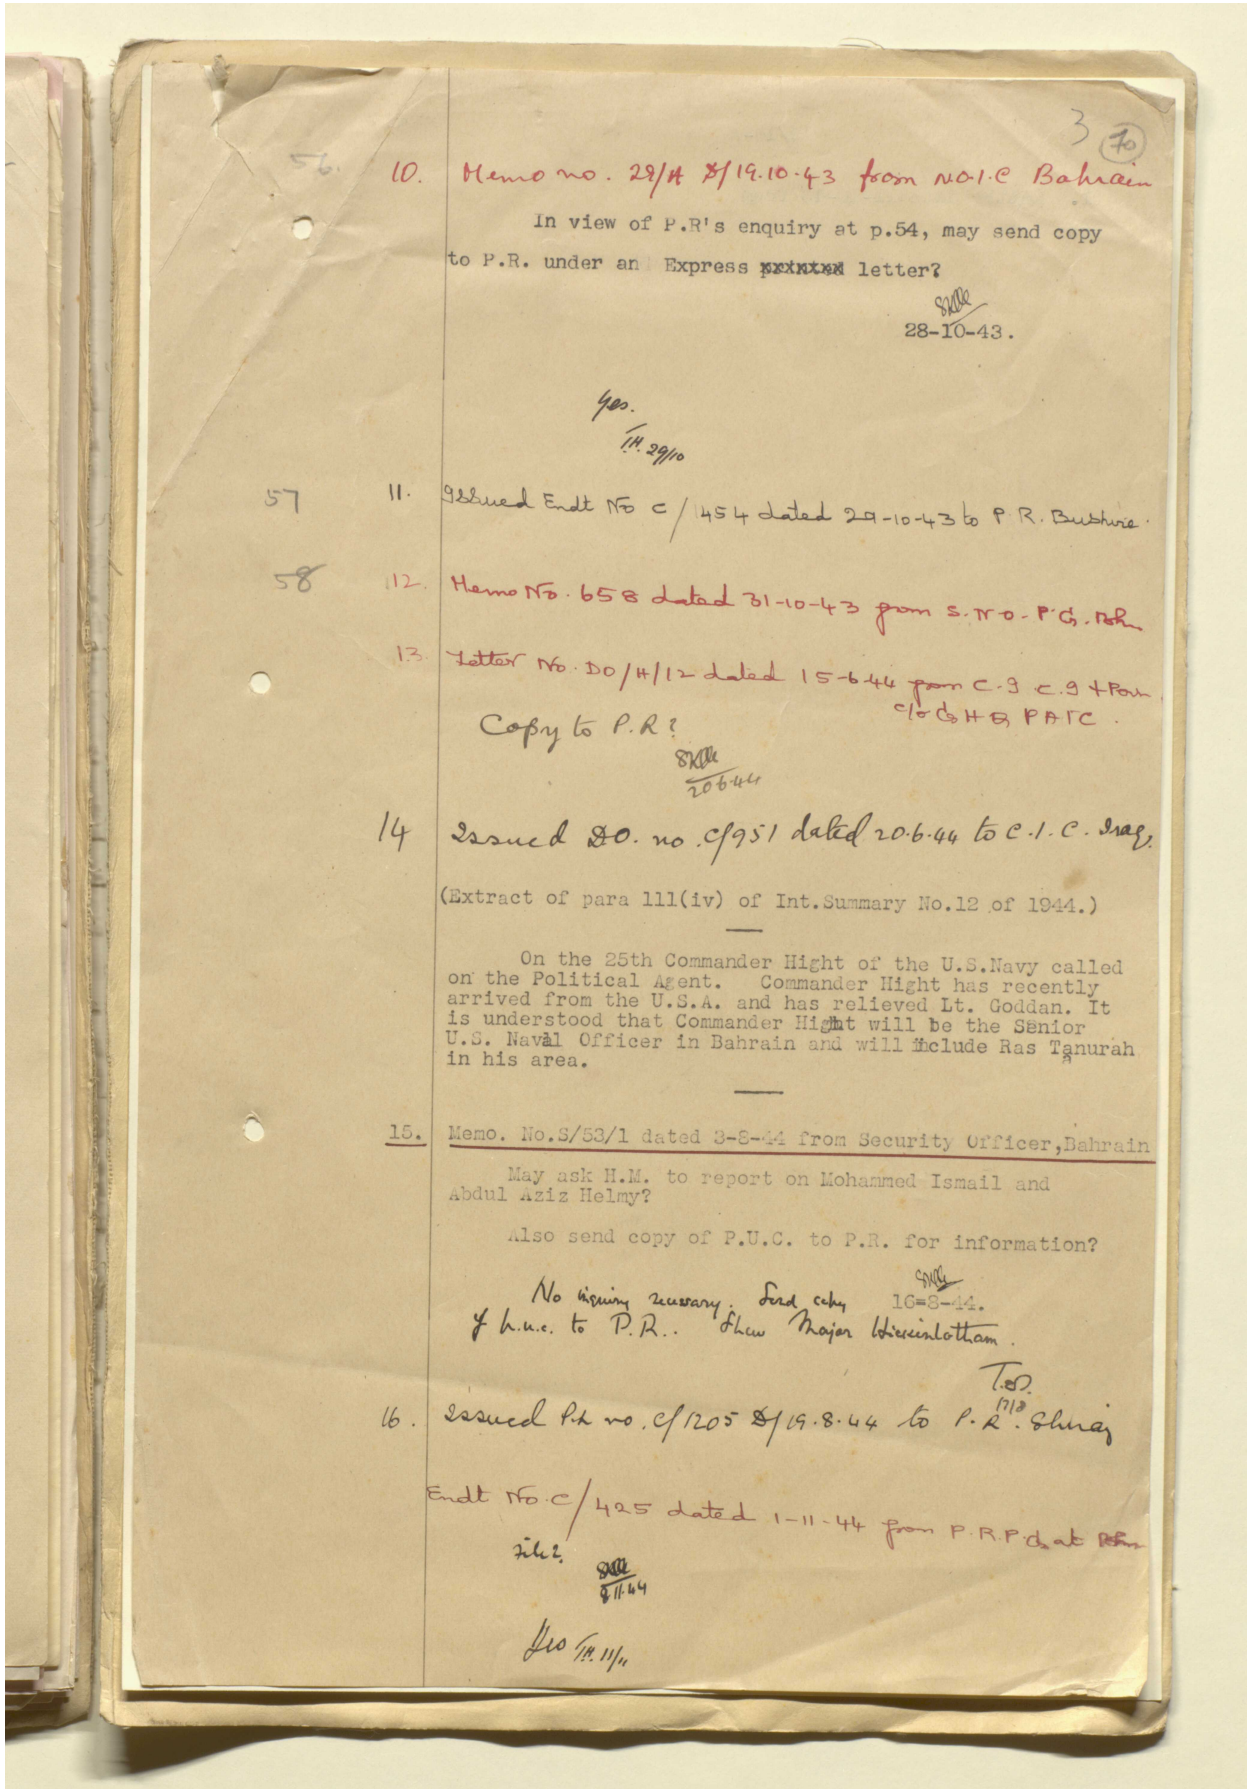 3
70
56.
10. Memo no. 28/A D/19.10.43 from N.O.I.C Bahrain
In view of P.R's enquiry at p.54, may send copy
to P.R. under an Express letter?
28-10-43.
Yes.
T.H. 29/10
57
11. Issued Endt No C/1454 dated 29-10-43 to P.R. Bushire.
58
12. Memo No. 658 dated 31-10-43 from S.N.O. P.G. Bhn
13. Letter No. DO/H/12 dated 15-6-44 from C.I.C.I
c/o GHQ PAIC.
Copy to P.R?
20.6.44
14 Issued DO. no. C/951 dated 20.6.44 to C.I.C. Iraq.
(Extract of para 111(iv) of Int.Summary No.12 of 1944.)
On the 25th Commander Hight of the U.S.Navy called
on the Political Agent. Commander Hight has recently
arrived from the U.S.A. and has relieved Lt. Goddan. It
is understood that Commander Hight will be the Senior
U.S. Naval Officer in Bahrain and will include Ras Tanurah
in his area.
15. Memo. No.S/53/1 dated 3-8-44 from Security Officer,Bahrain
May ask H.M. to report on Mohammed Ismail and
Abdul Aziz Helmy?
Also send copy of P.U.C. to P.R. for information?
16=8-44.
No inquiry necessary. Send copy
of p.u.c. to P.R.. Show Major
17/8
16. Issued P.L no. C/1205 D/19.8.44 to P.R. Shiraz
Endt No. C/425 dated 1-11-44 from P.R.P.G. at Bhn
File?
8 11.44
Yes T.H. 11/11